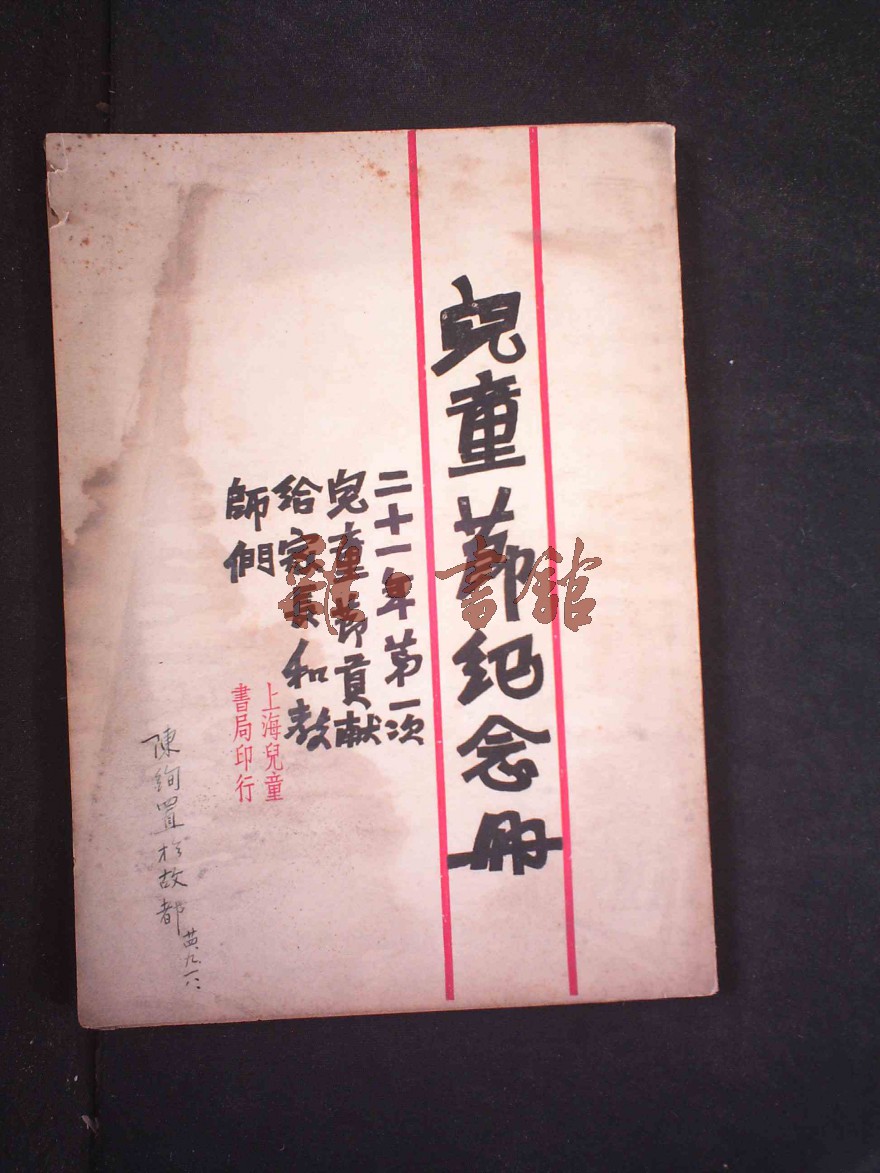 兒童節紀念冊
二十一年第一次
兒童節貢獻
給家長和教
師們
上海兒童
書局印行
陳絢置於故都
書舘